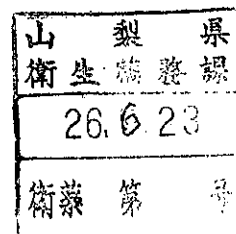 山梨県
衛生薬務課
26.6.23
衛薬第 号